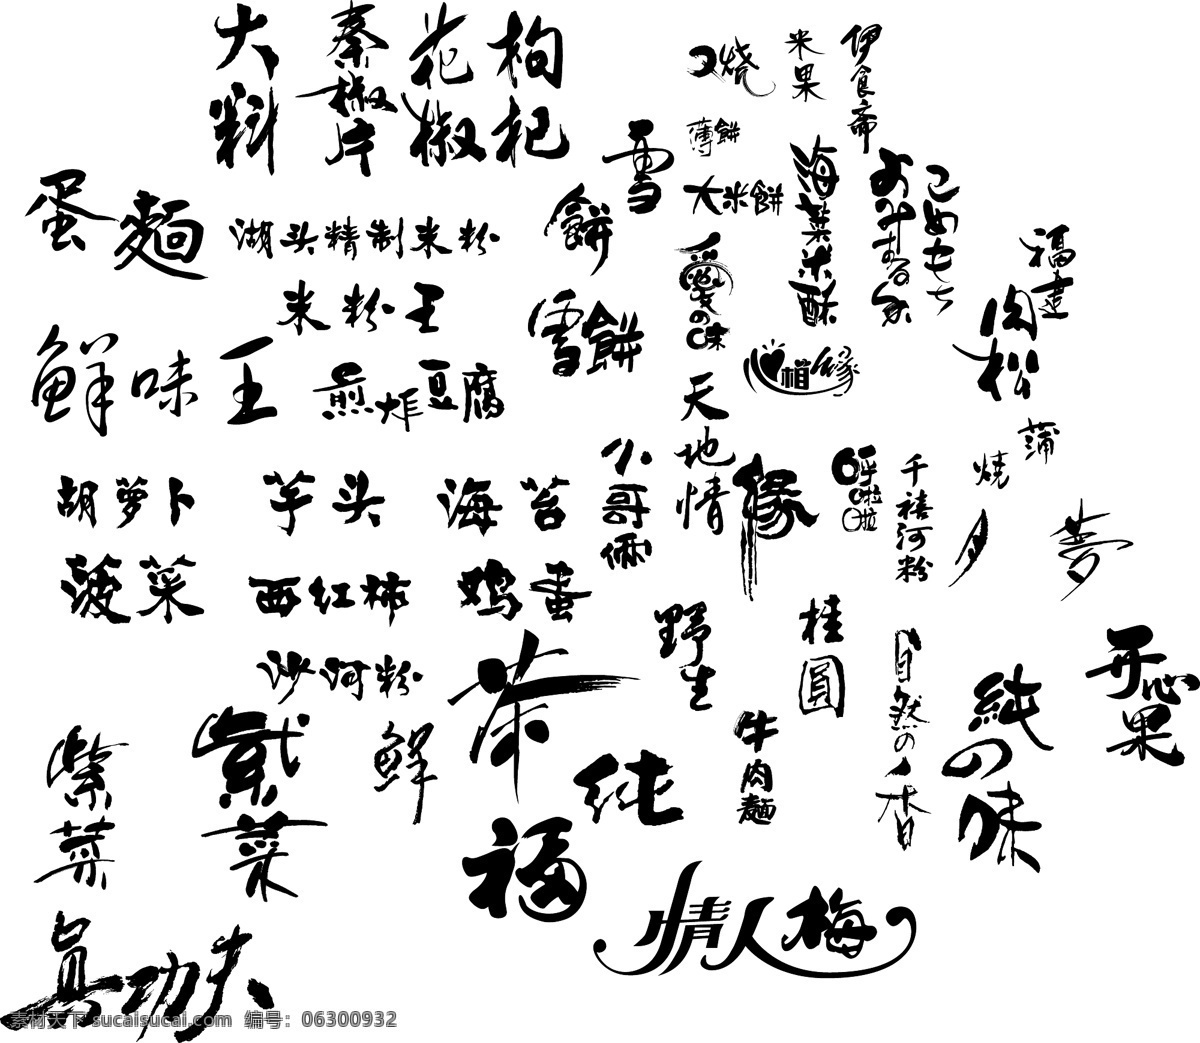 大料
秦椒片
花椒
枸杞
口烧
米果
伊食斋
薄餅
雪餅
大米餅
海菜米酥
こめもち
蛋麵
湖头精制米粉
愛の味
福建
肉松
米粉王
雪餅
鲜味王
煎炸豆腐
相缘
天地情
蒲
燒
胡萝卜
芋头
海苔
小哥俩
緣
呼啦啦
千禧河粉
月
夢
菠菜
西红柿
鸡蛋
野生
桂圓
自然の香
純の味
开心果
沙河粉
茶
紫菜
紫菜
鲜
纯
牛肉麵
福
情人梅
真功夫
素材天下 sucaisucai.com 编号：06300932